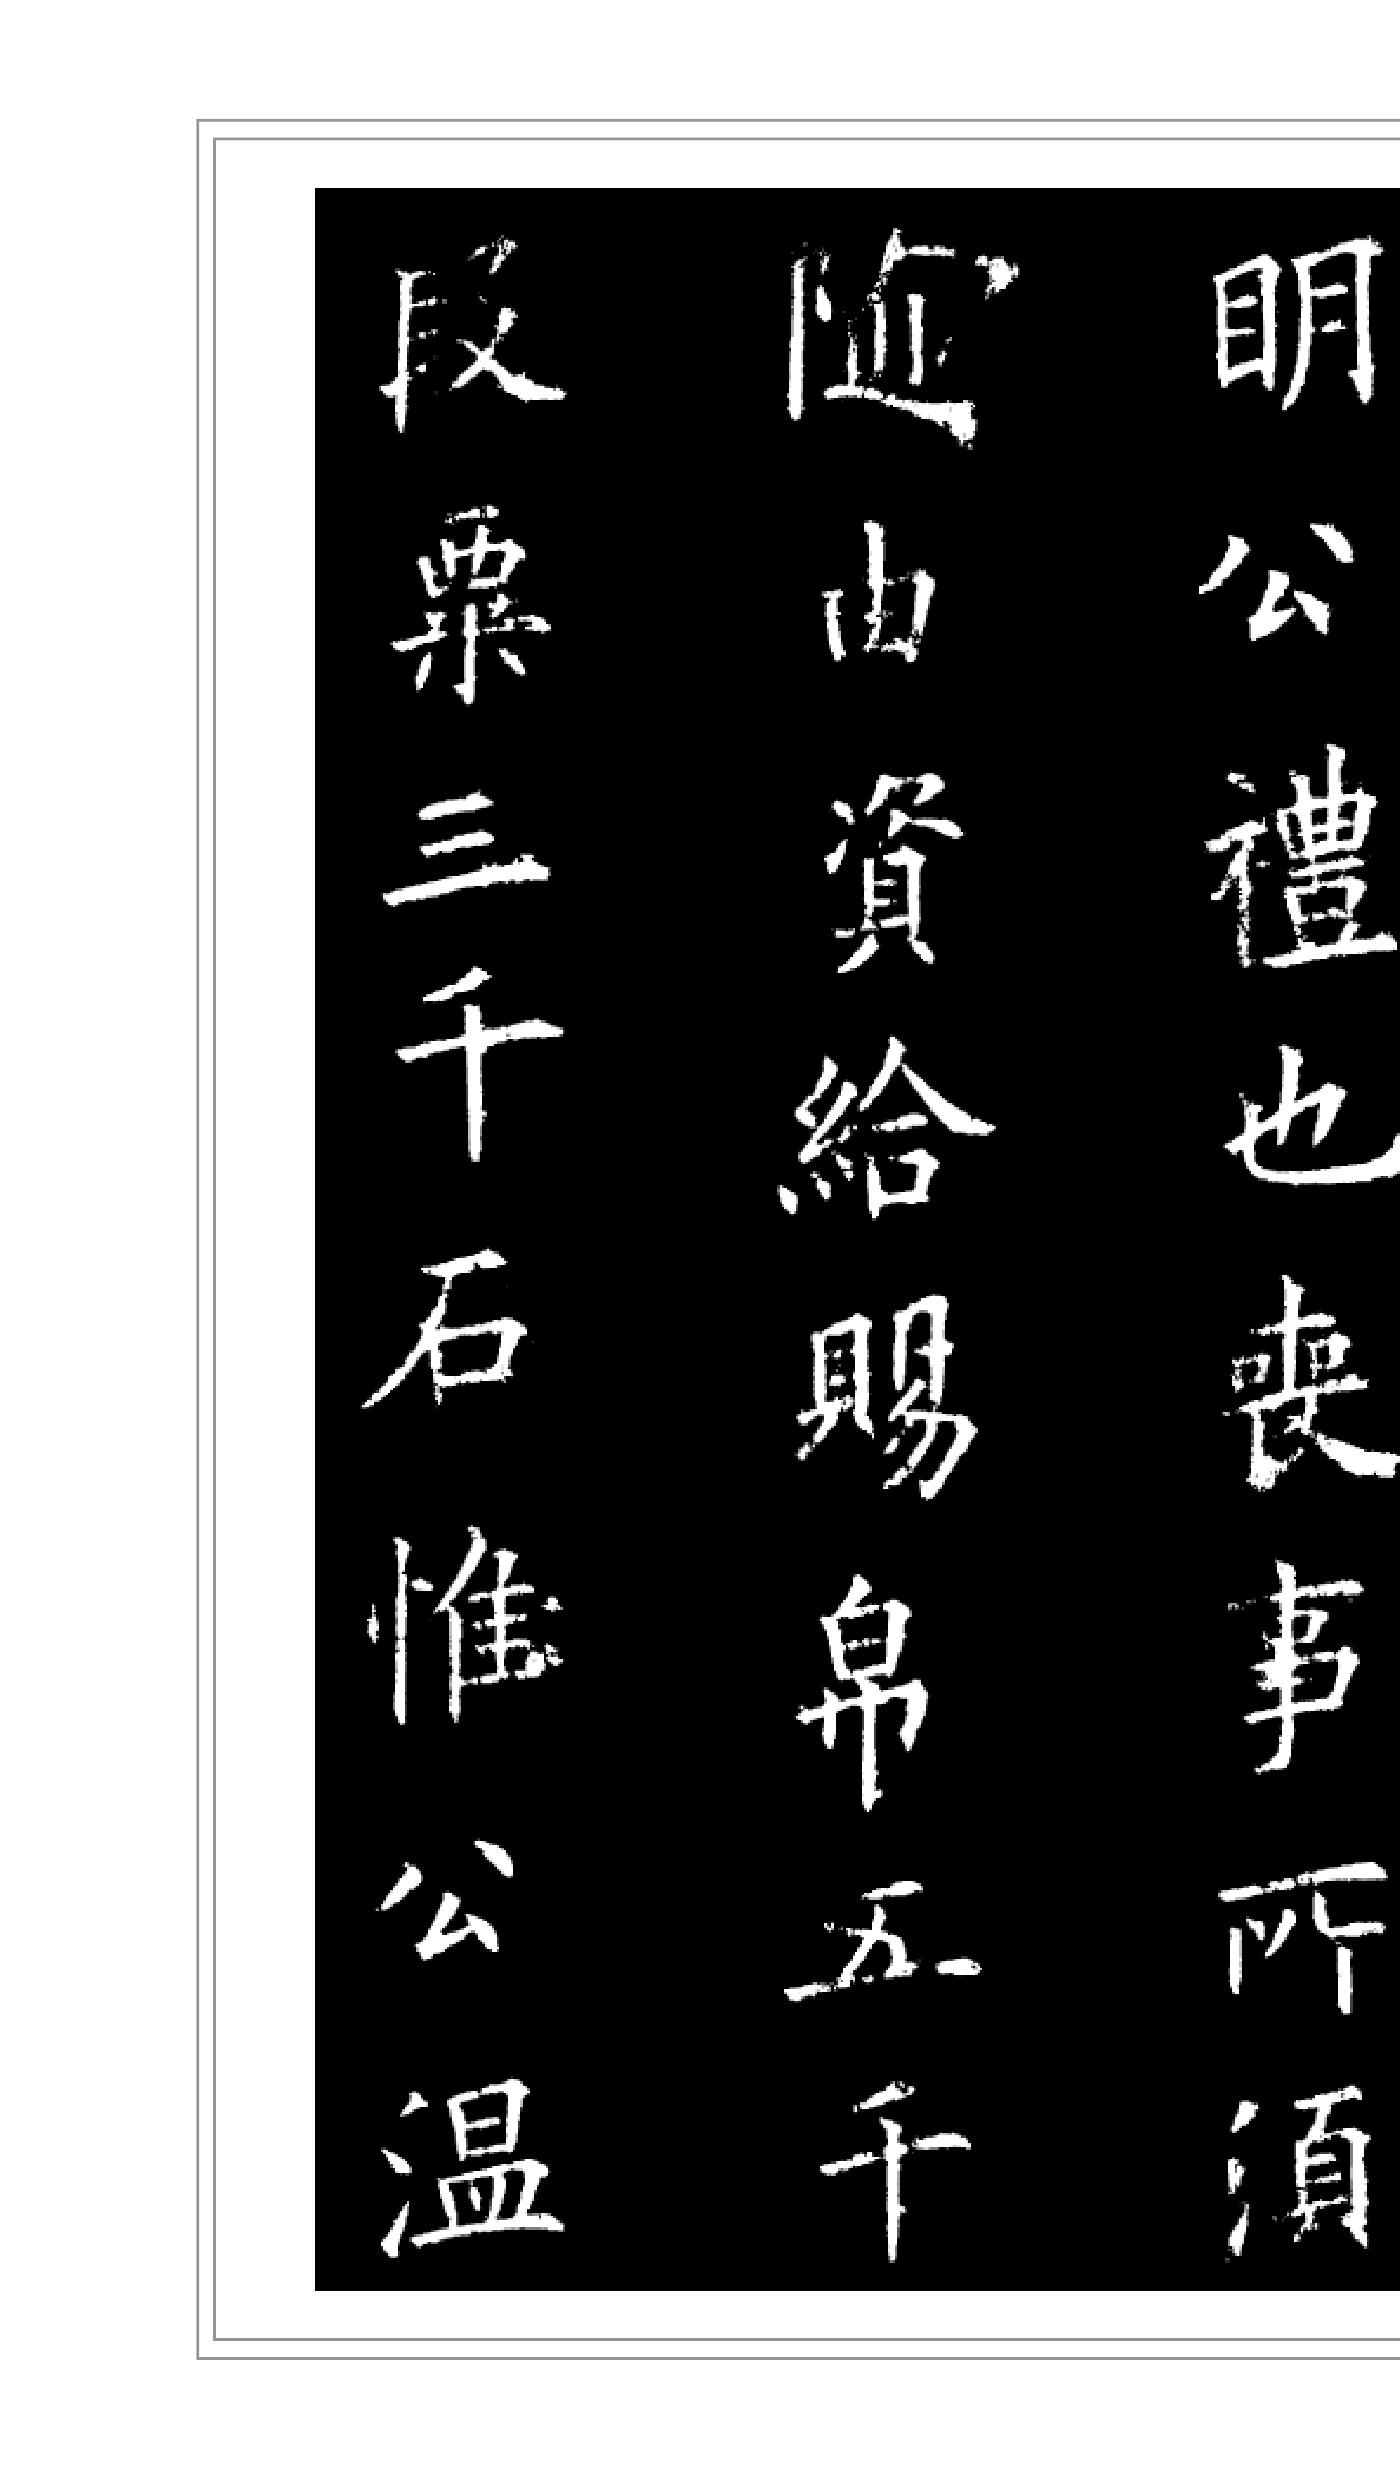 眀公禮也喪事所湏
由資給賜帛五千
段粟三千石惟公温